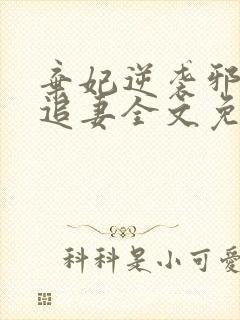 弃妃逆袭邪
追妻全文免
科科是小可爱